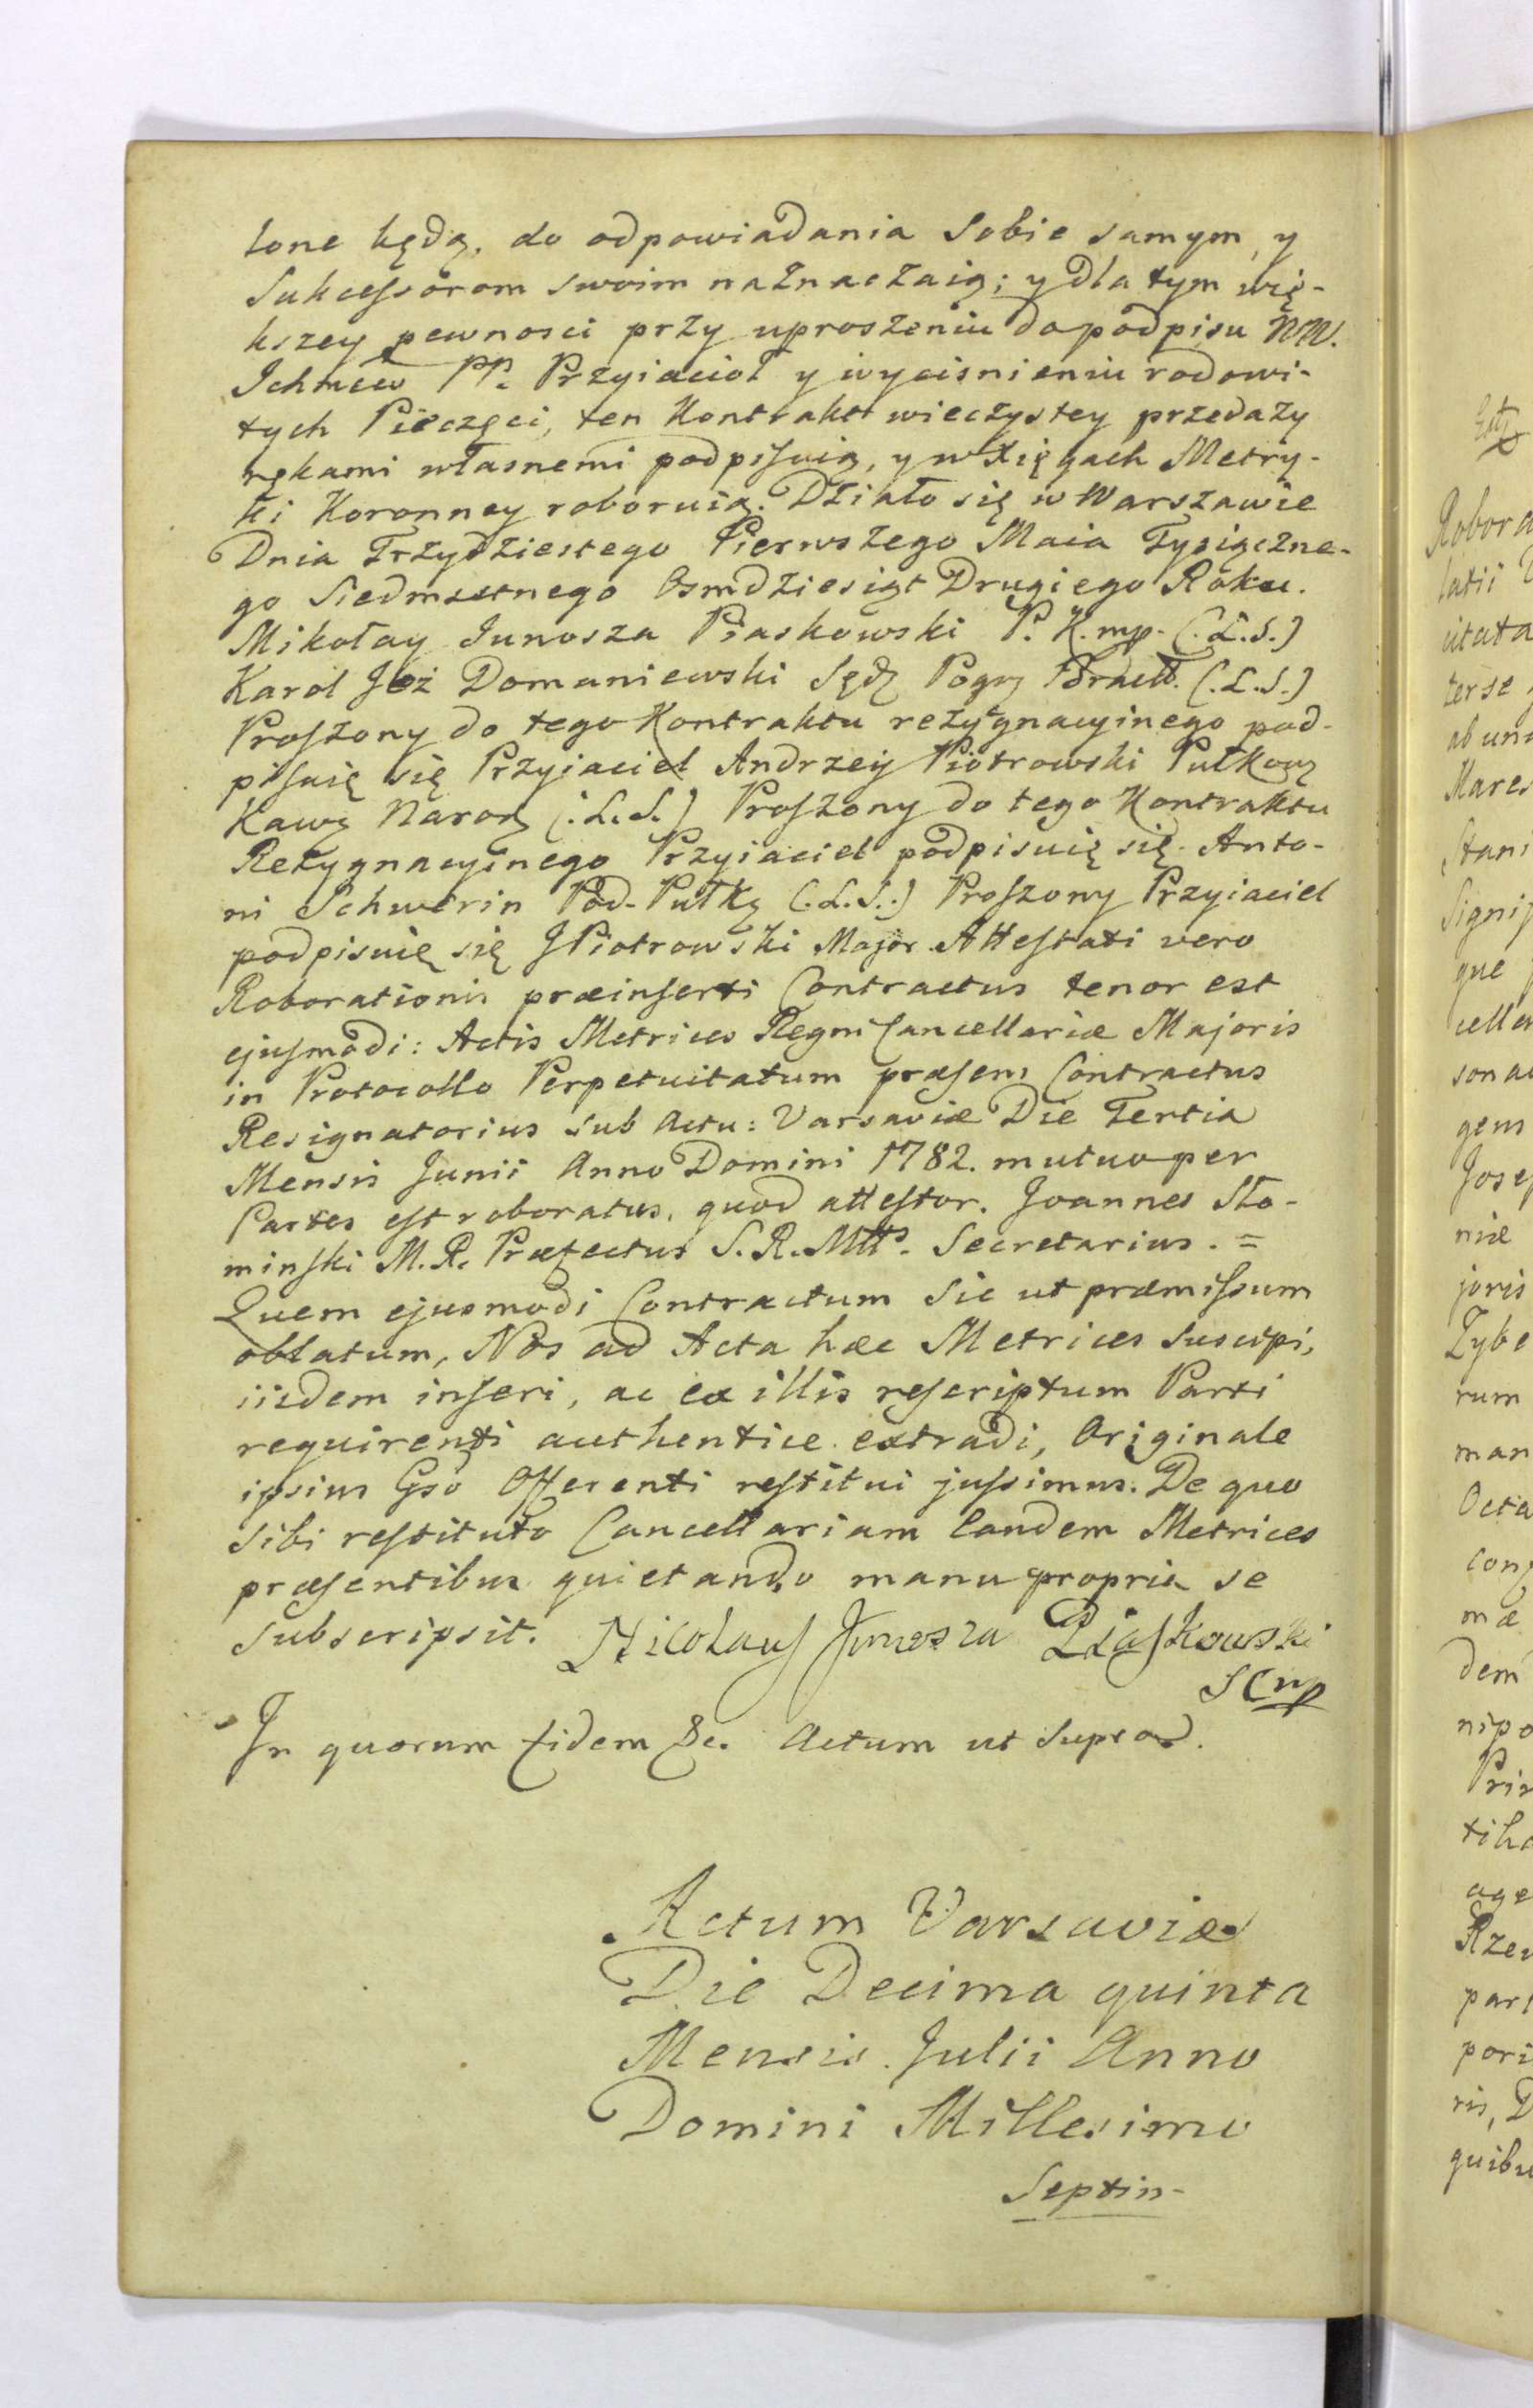 lone będą, do odpowiadania Sobie samym, y
Sukcessorom swoim naznaczaią; y dla tym wię-
kszey pewnosci przy uproszeniu do podpisu WW.
Ichmciow PP. Przyiacioł y wycisnieniu rodowi-
tych Pieczęci, ten Kontrakt wieczystey przedazy
rękami własnemi podpisuią, y w Xięgach Metry-
ki Koronney roboruią. Działo się w Warszawie
Dnia Trzydziestego Pierwszego Maia Tysiączne-
go Siedmsetnego Osmdziesiąt Drugiego Roku.
Mikołay Junosza Piaskowski P. K. mp. (.L.S.)
Karol Jeż Domaniewski Sędz Pogrz Bracł. (.L.S.)
Proszony do tego Kontraktu rezygnacyinego pod-
pisuię się Przyjaciel Andrzeij Piotrowski Pułkow
Kaw Narod (.L.S.) Proszony do tego Kontraktu
Rezygnacyinego Przyiaciel podpisuię się. Anto-
ni Schwerin Pod-Pułk (.L.S.) Proszony Przyiaciel
podpisuię się JPiotrowski Major. Attestati vero
Roborationis præinserti Contractus tenor est
ejusmodi: Actis Metrices Regni Cancellariæ Majoris
in Protocollo Perpetuitatum præsens Contractus
Resignatorius sub Actu: Varsaviæ Die Tertia
Mensis Junii Anno Domini 1782. mutuo per
Partes est roboratus, quod attestor. Joannes Sło-
minski M. R. Præfectus S. R. Mttis. Secretarius. =
Quem ejusmodi Contractum Sic ut præmissum
oblatum, Nos ad Acta hæc Metrices Suscipi,
iisdem inseri, ac ex illis rescriptum Parti
requirenti authentice extradi, Originale
ipsius Gso Offerenti restitui jussimus. De quo
sibi restituto Cancellariam Eandem Metrices
præsentibus quietando manu propria se
subscripsit. Nicolaus Junosza Piaskowski
In quorum fidem &c. Actum ut Supra.
Actum Varsaviæ
Die Decima quinta
Mensis Julii Anno
Domini Millesimo
Septin-
Robora
latii
citata
terse
ab un
Mares
Stani
Signi
que
cella
sona
gens
Jose
niæ
joris
Tybe
rum
man
Octa
cong
mæ
dem
nipo
Prin
tiha
age
Rzew
part
pori
ris, D
quibu